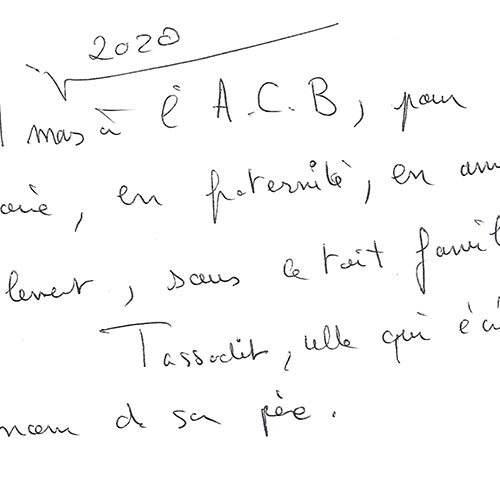 2020
mas à l'A.C.B, pour
, en fraternité, en am
lement, sous ce toit famil
Tassadit, celle qui éc
nom de son père.